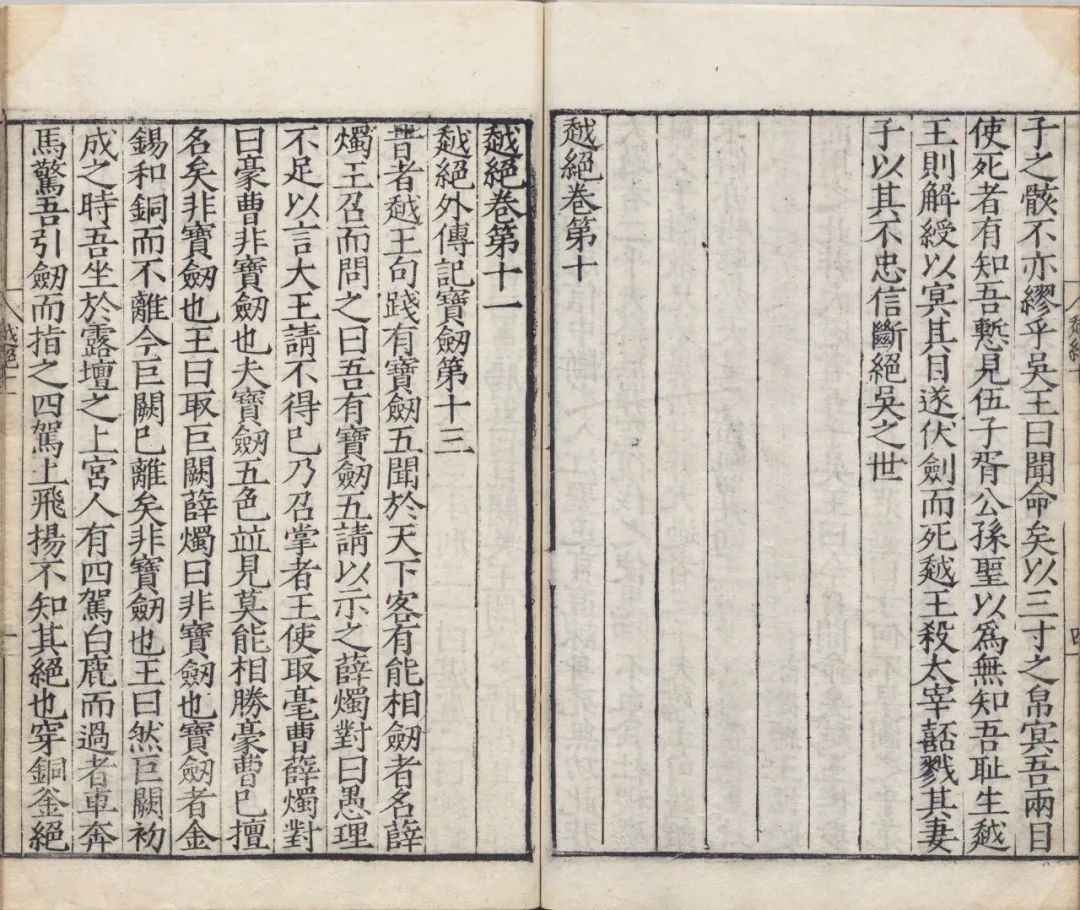 子之骸不亦繆乎吳王曰聞命矣以三寸之帛冥吾兩目
使死者有知吾慙見伍子胥公孫聖以為無知吾耻生越
王則解綬以冥其目遂伏劍而死越王殺太宰嚭戮其妻
子以其不忠信斷絕吳之世
越絕卷第十
越絕卷第十一
越絕外傳記寶劒第十三
昔者越王句踐有寶劒五聞於天下客有能相劒者名薛
燭王召而問之曰吾有寶劒五請以示之薛燭對曰愚理
不足以言大王請不得已乃召掌者王使取毫曹薛燭對
曰豪曹非寶劒也夫寶劒五色並見莫能相勝豪曹已擅
名矣非寶劒也王曰取巨闕薛燭曰非寶劒也寶劒者金
錫和銅而不離今巨闕已離矣非寶劒也王曰然巨闕初
成之時吾坐於露壇之上宮人有四駕白鹿而過者車奔
馬驚吾引劒而指之四駕上飛揚不知其絕也穿銅釜絕